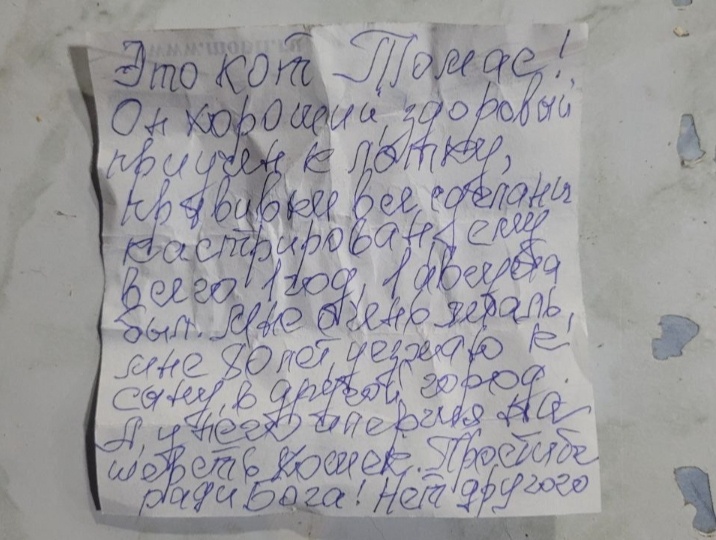 Это кот Томас!
Он хороший здоровый
приучен к лотку,
прививки все сделаны
кастрирован, ему
всего 1 год, 1 августа
был. Мне очень жаль,
мне 80 лет, уезжаю к
сыну в другой город.
А у него алергия на
шерсть кошек. Простите
ради Бога! Нет другого